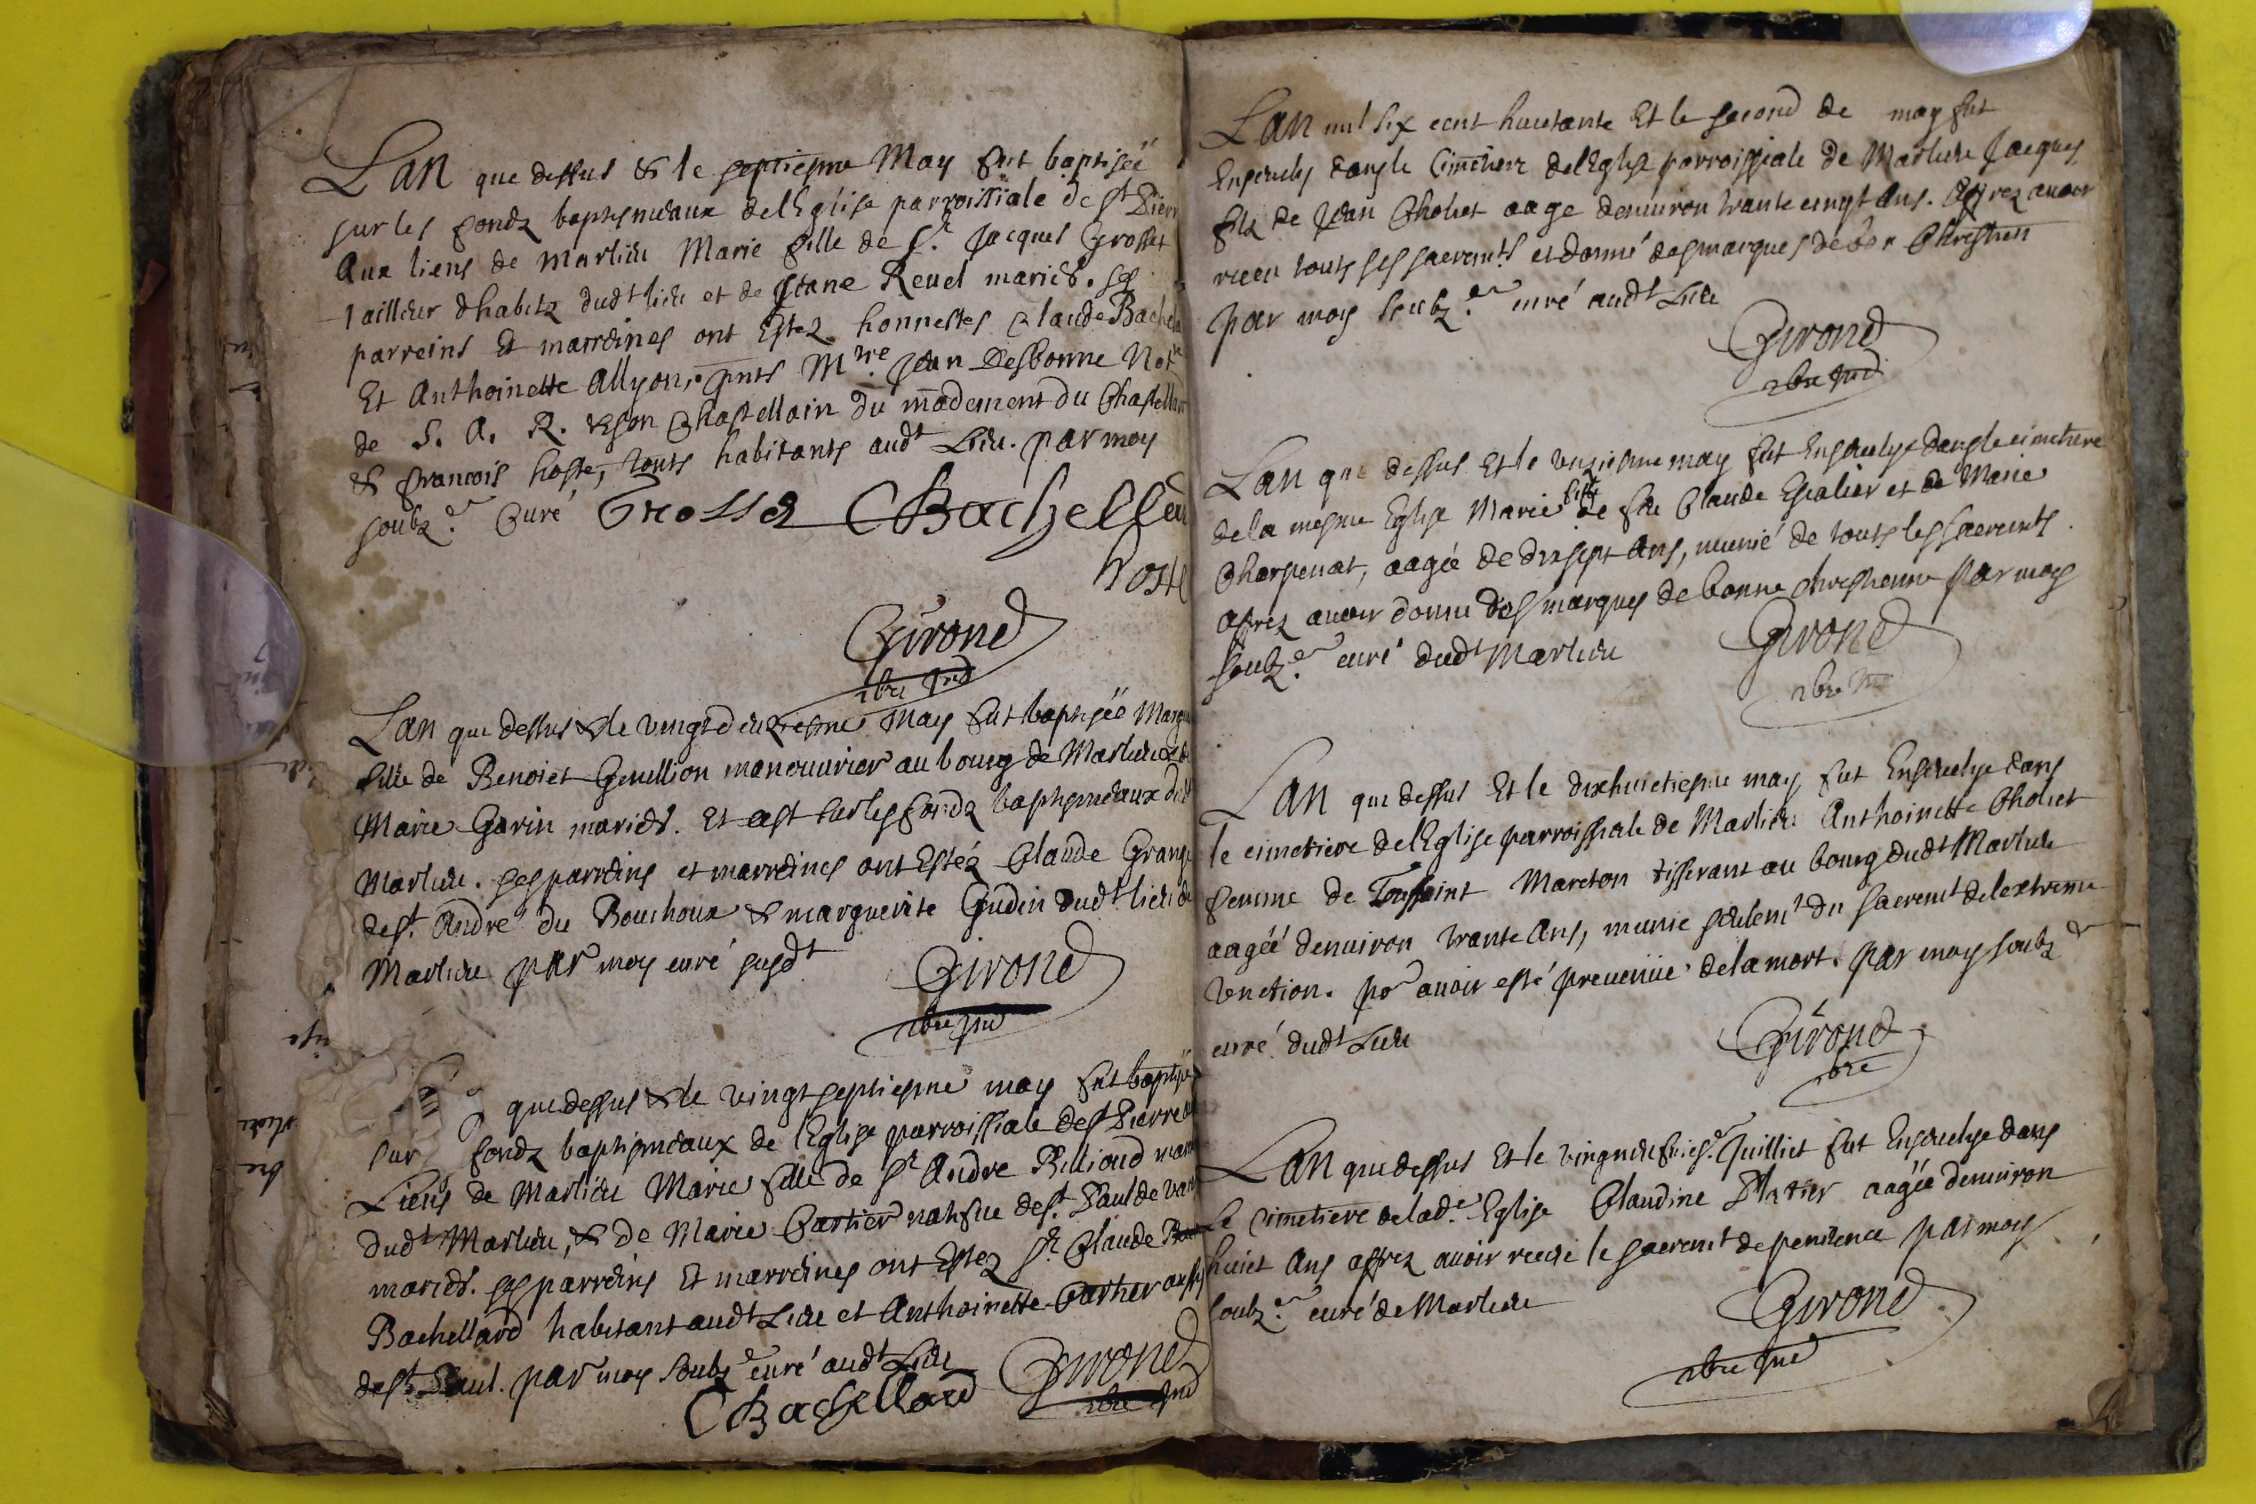 Lan que dessus & le septiesme May fut baptiseé
sur les fondz baptismeaux de lEglise parroissiale de St Pierre
Aux liens de Marlieu Marie fille de Sr Jacques Grosset
Tailleur dhabitz dudt lieu et de Jeane Revel mariés. ses
parreins Et marreines ont Estez honnestes Claude Bachel
Et Anthoinette Allyon, pnts Mtre Jean Desbonne Not
de S. A. R. & son Chastellain du madement du Chastell
& francois hoste, touts habitants audt Lieu. par moy
soubz.é Curé Grosset CBachellard
hoste
Girond
Lan que dessus & le vingtdeuxiesme May fut baptiseé Marg
fille de Benoiet Genellion manouvrier au bourg de Marlieu &
Marie Garin mariés. Et cest sur les fondz baptismeaux dudt
Marlieu. ses parreins et marreines ont Estéz Claude Grang
de St. André du Bouchoux & marguerite Gudin dudt lieu de
Marlieu par moy curé susdt
Girond
Lan que dessus & le vingt septiesme may fut baptiseé
sur fondz baptismeaux de lEglise parroissiale de St Pierre
Liens de Marlieu Marie fille de Sr André Billioud
dudt Marlieu, & de Marie Cartier natifve de St. Paul de
mariés. ses parreins Et marreines ont Estez Sr Claude
Bachellard habitant audt Lieu et Anthoinette Cartier aussy
de St Paul. par moy soubzé curé audt Lieu
CBachellard Girond
Lan mil six cent huictante Et le second de may fut
Ensevely dans le Cimetiere de lEglise parroissiale de Marlieu Jacques
filz de Jean Choliet aage denviron trante cinq Ans. Aprez avoir
receu touts ses sacremts et donné des marques de bon Chrestien
par moy soubz.é curé audt Lieu
Girond
Lan que dessus Et le unziesme may fut Ensevelye dans le cimetiere
de la mesme Eglise Marie fille de feu Claude Escalier et de Marie
Charpenat, aageé de dixsept Ans, munié de touts les sacremts
aprez avoir donné des marques de bonne chrestienne par moy
soubz.é curé dudt Marlieu
Girond
Lan que dessus Et le dixhuictiesme may fut Ensevelye dans
le cimetiere de lEglise parroissiale de Marlieu Anthoinette Choliet
femme de Toussaint Mareton tisserant au bourg dudt Marlieu
aageé denviron trante Ans, munie seulemt du sacremt de lextreme
Unction. por avoir esté prevenüe de la mort. par moy soubzé
curé dudt Lieu
Girond
pbre
Lan que dessus Et le Juilliet fut Ensevelye dans
Le Cimetiere de lad.e Eglise Claudine Platier aageé denviron
huict Ans aprez avoir receu le sacremt de penitence par moy
soubz.é curé de Marlieu
Girond